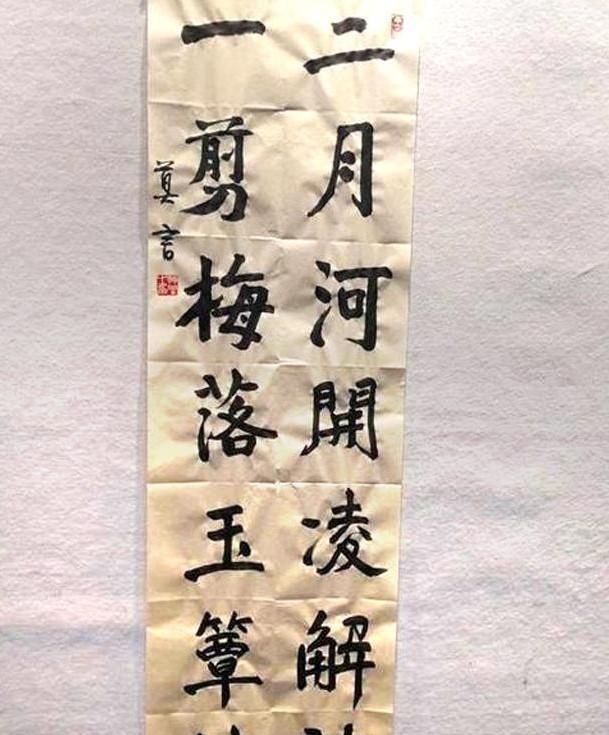 二月河開凌解
一剪梅落玉簟
莫言